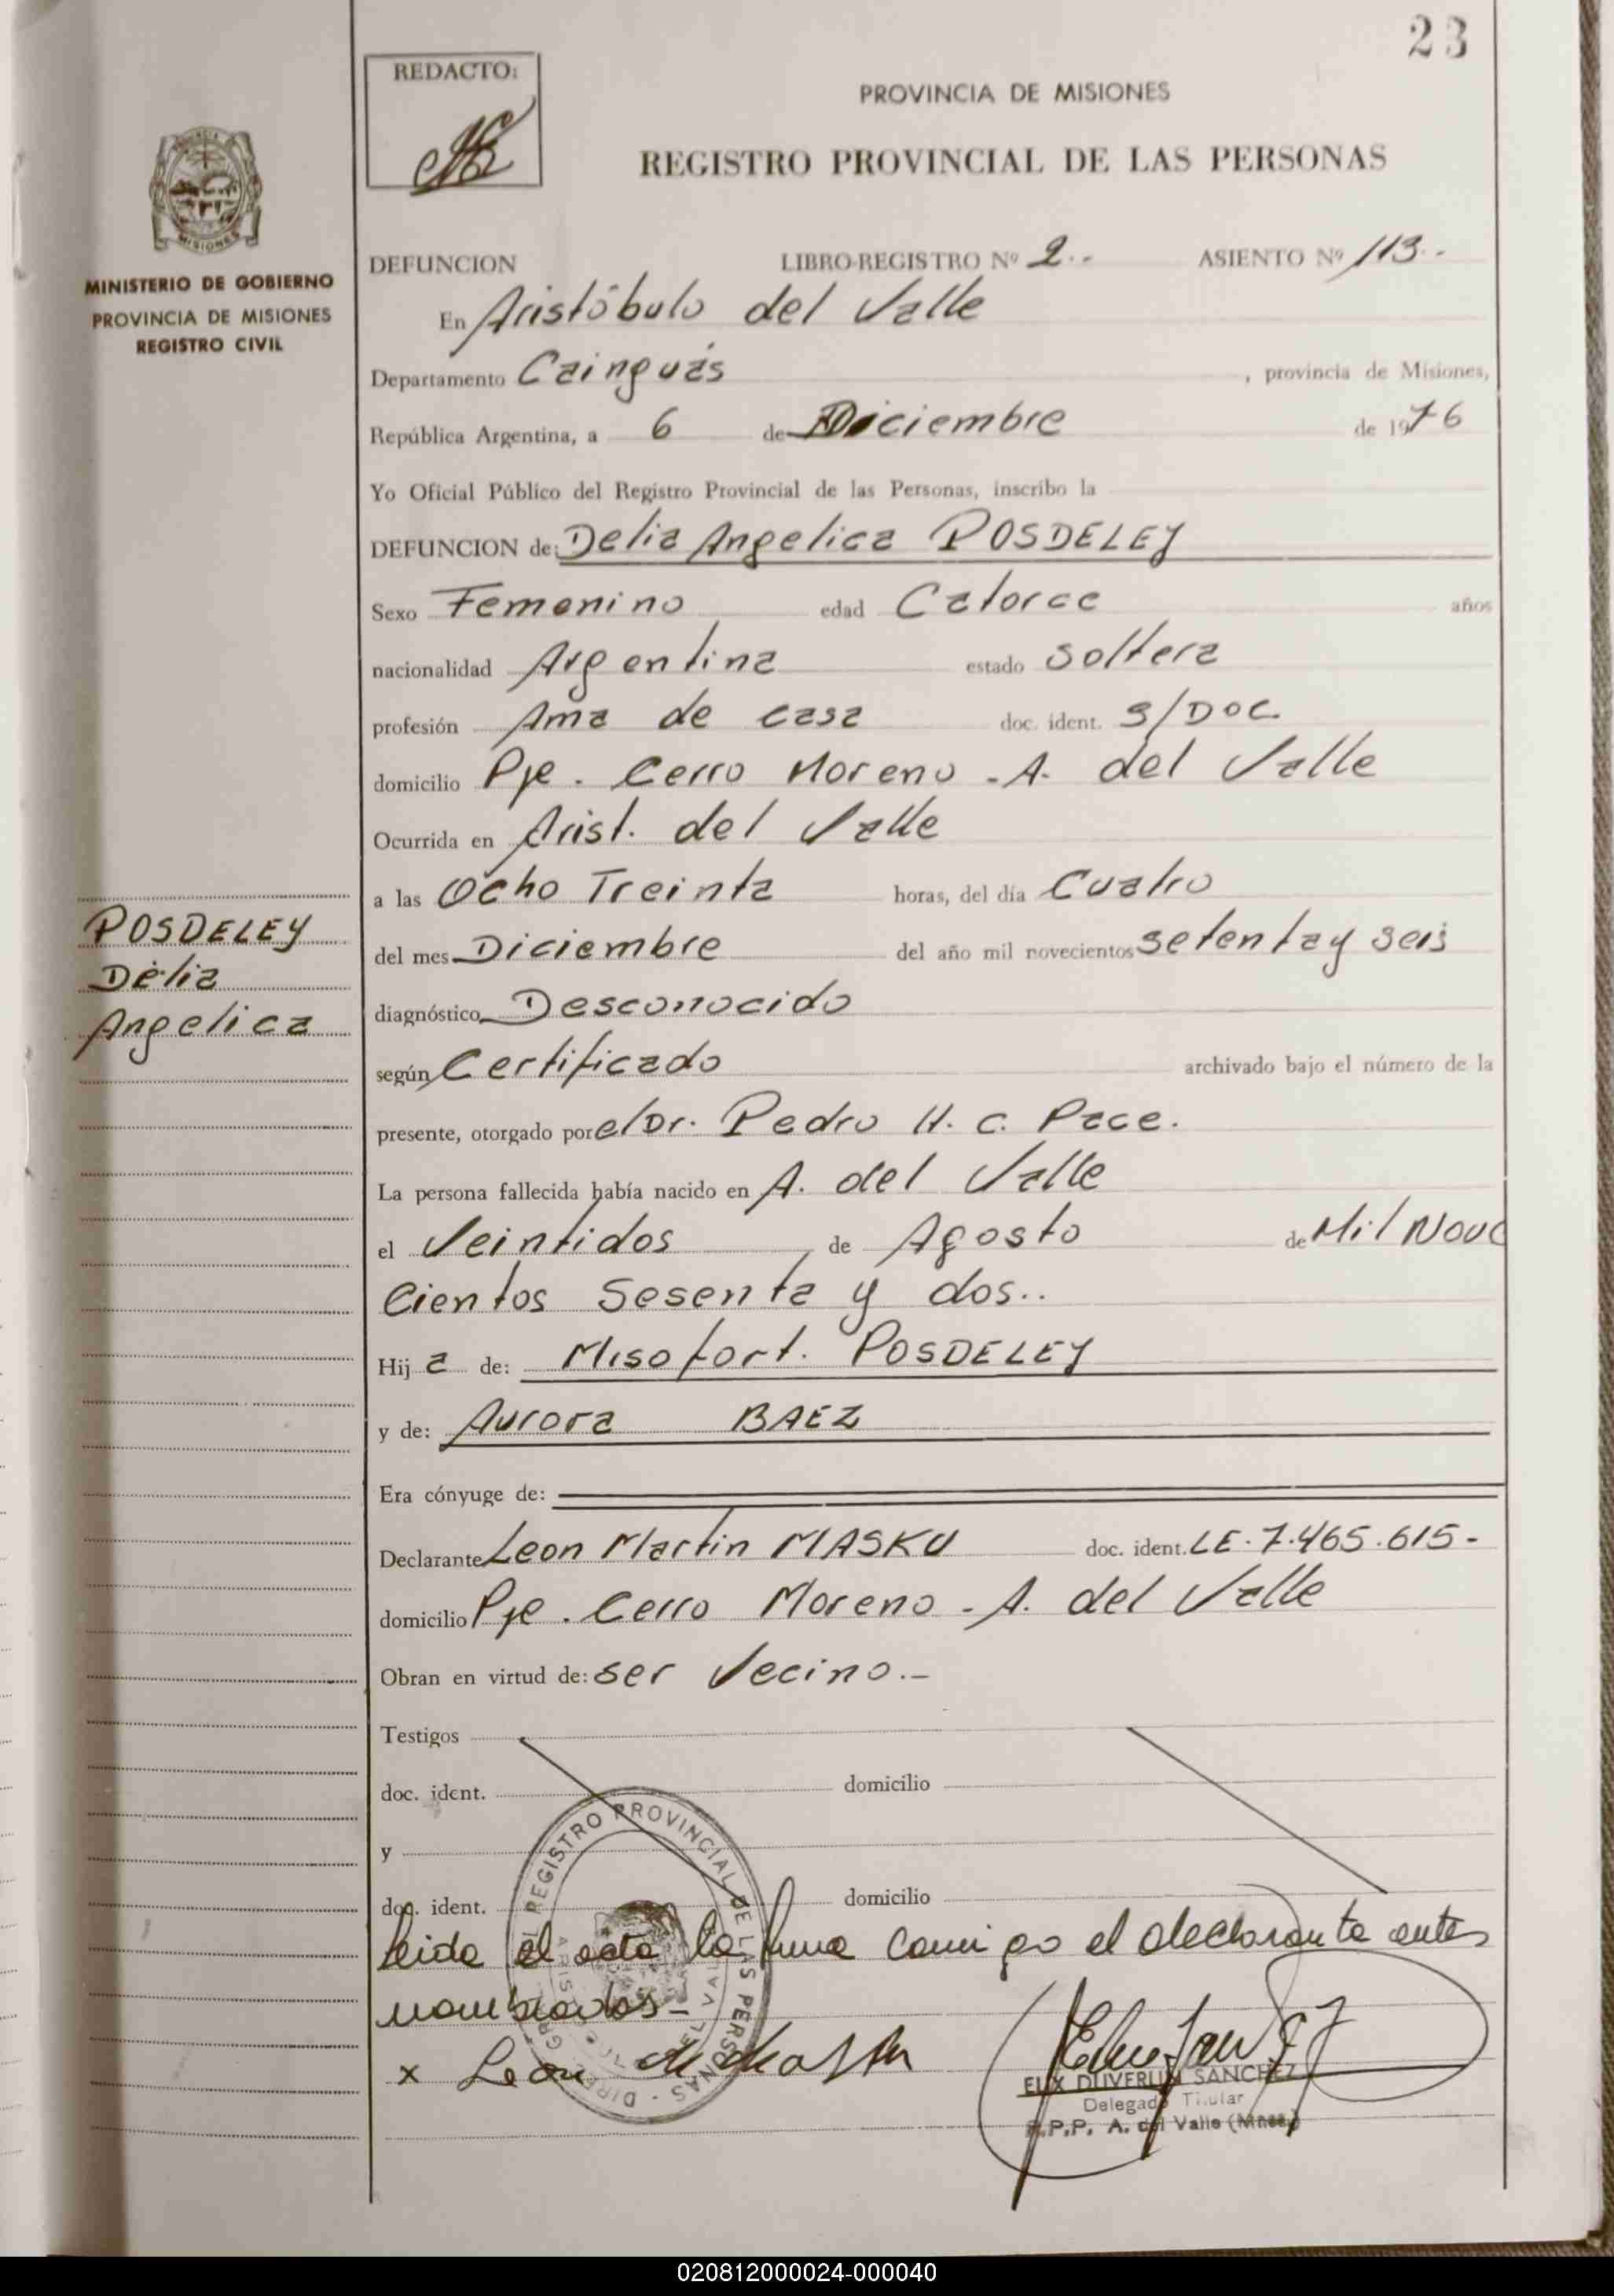 23
REDACTO:
PROVINCIA DE MISIONES
REGISTRO PROVINCIAL DE LAS PERSONAS
MISIONES
MINISTERIO DE GOBIERNO
PROVINCIA DE MISIONES
REGISTRO CIVIL
DEFUNCION LIBRO-REGISTRO Nº 2.- ASIENTO Nº 113.-
En Aristóbulo del Valle
Departamento Cainguás , provincia de Misiones,
República Argentina, a 6 de Diciembre de 1976
Yo Oficial Público del Registro Provincial de las Personas, inscribo la
DEFUNCION de: Delia Angelica POSDELEY
Sexo Femenino edad Catorce años
nacionalidad Argentina estado soltera
profesión Ama de casa doc. ident. S/DOC
domicilio Pje. Cerro Moreno - A. del Valle
Ocurrida en Arist. del Valle
a las Ocho Treinta horas, del día Cuatro
del mes Diciembre del año mil novecientos setenta y seis
diagnóstico Desconocido
según Certificado archivado bajo el número de la
presente, otorgado por el Dr. Pedro H. C. Pace.
La persona fallecida había nacido en A. del Valle
el Veintidos de Agosto de Mil Nove
Cientos Sesenta y dos..
Hij a de: Misofort. POSDELEY
y de: Aurora BAEZ
Era cónyuge de:
Declarante Leon Martin MASKU doc. ident. LE. 7.465.615-
domicilio Pje. Cerro Moreno - A. del Valle
Obran en virtud de: ser Vecino.-
Testigos
doc. ident. domicilio
y
doc. ident. domicilio
leida el acta la firma conmigo el declarante antes
nombrados-
x Leon
REGISTRO PROVINCIAL DE LAS PERSONAS
SANCHEZ
Delegado Titular
R.P.P. A. del Valle (Mnes.)
POSDELEY
Delia
Angelica
020812000024-000040